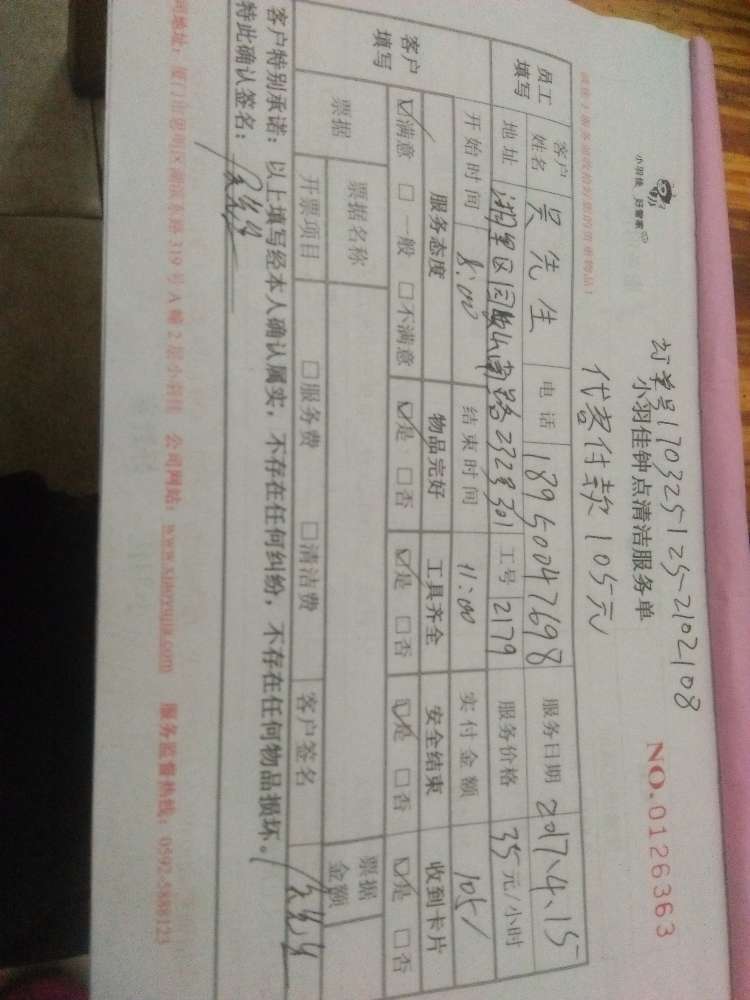 小羽佳 好管家
订单号1703251252102108
小羽佳钟点清洁服务单
NO.0126363
代客付款105元
员工填写 客户姓名 吴先生 电话 18950047698 服务日期 2017.4.15
地址 湖里区园山南路232号301 工号 2179 服务价格 35元/小时
开始时间 8:00 结束时间 11:00 实付金额 105/
客户填写 服务态度 物品完好 工具齐全 安全结束 收到卡片
☑满意 □一般 □不满意 ☑是 □否 ☑是 □否 ☑是 □否 ☑是 □否
票据 票据名称 票据金额
开票项目 □服务费 □清洁费 客户签名
客户特别承诺：以上填写经本人确认属实，不存在任何纠纷，不存在任何物品损坏。
特此确认签名：
司地址：厦门市思明区湖滨东路319号A幢2层小羽佳 公司网站：www.xiaoyujia.com 服务监督热线：0592-5888123